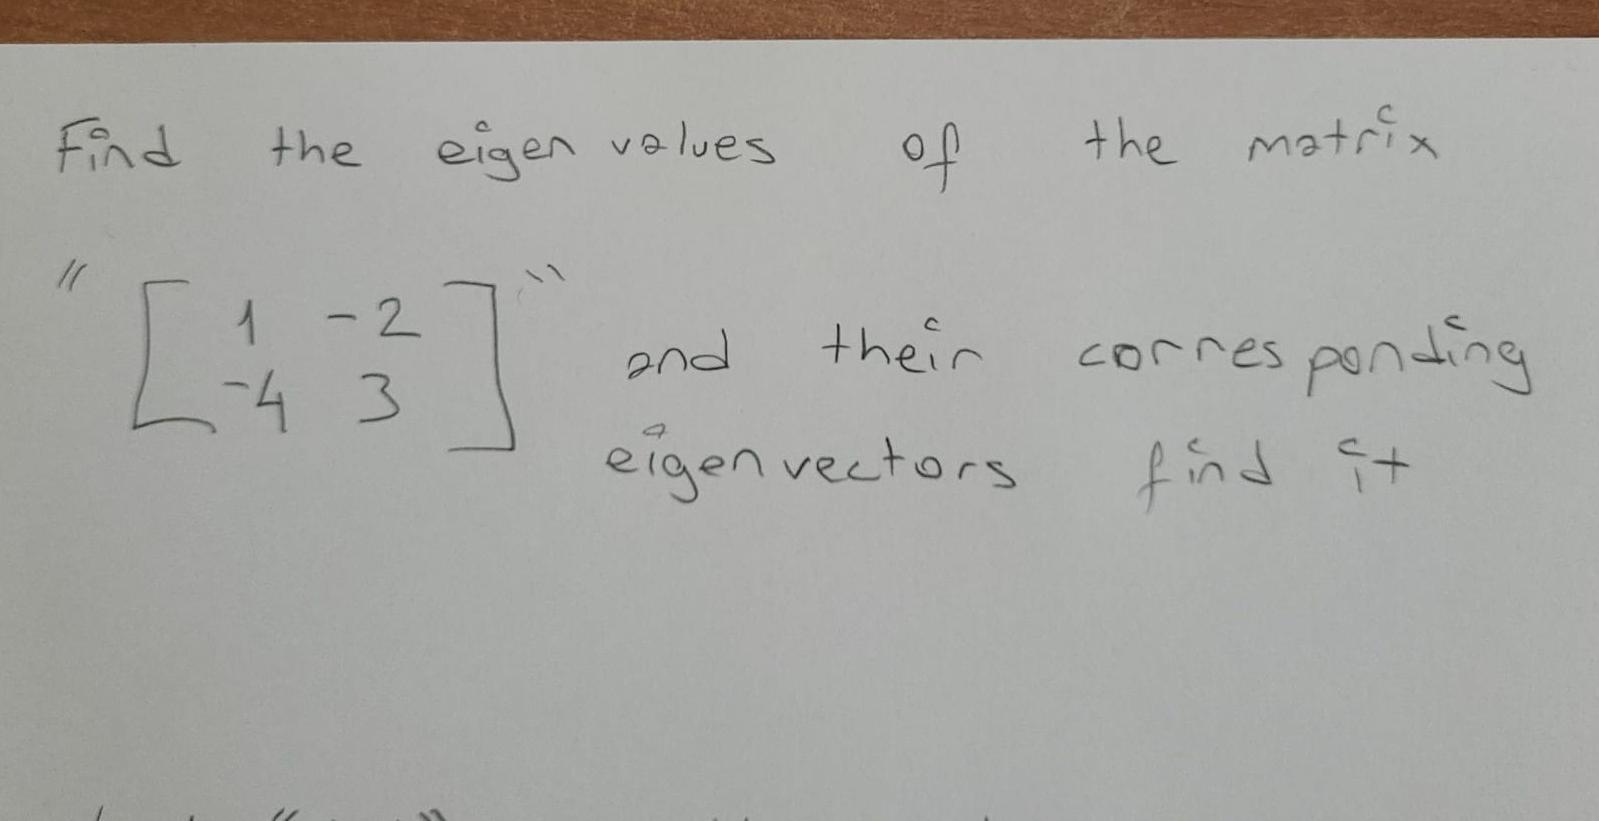 Find the eigen values of the matrix
" [ 1 -2
-4 3 ] " and their corresponding
eigenvectors find it